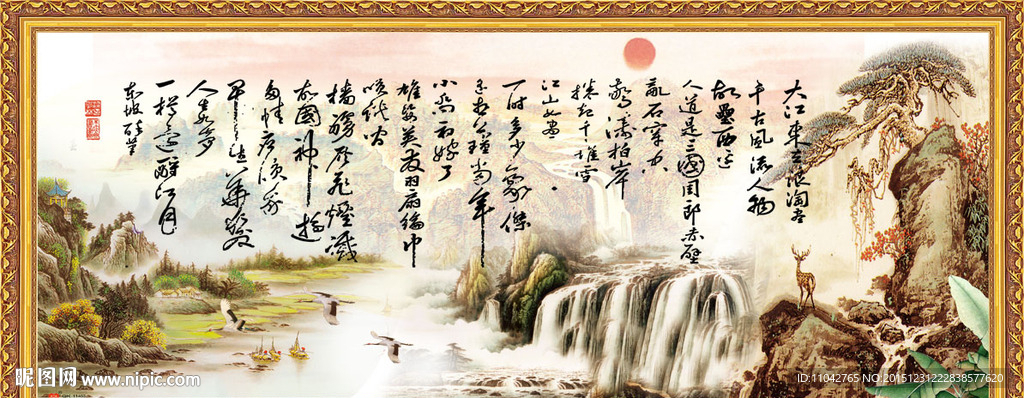 大江東去浪淘盡
千古風流人物
故壘西邊
人道是三國周郎赤壁
亂石穿空
驚濤拍岸
捲起千堆雪
江山如畫
一時多少豪傑
遙想公瑾當年
小喬初嫁了
雄姿英發羽扇綸巾
談笑間
檣櫓灰飛煙滅
故國神遊
多情應笑我
早生華髮
人生如夢
一樽還酹江月
東坡醉筆
昵图网 www.nipic.com
ID:11042765 NO:20151231222838577620